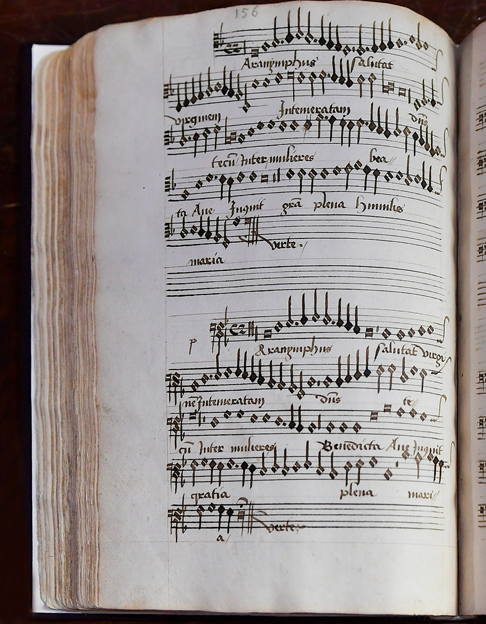 156
Aranymphus salutat
virginem Intemeratam dn̄s
tecū Inter mulieres bea
ta Aue Inquit grā plena humilis
maria verte.
p
Aranymphus salutat virgi
nē Intemeratam dn̄s te
cū Inter mulieres Benedicta Aue Inquit
gratia plena mari
a verte